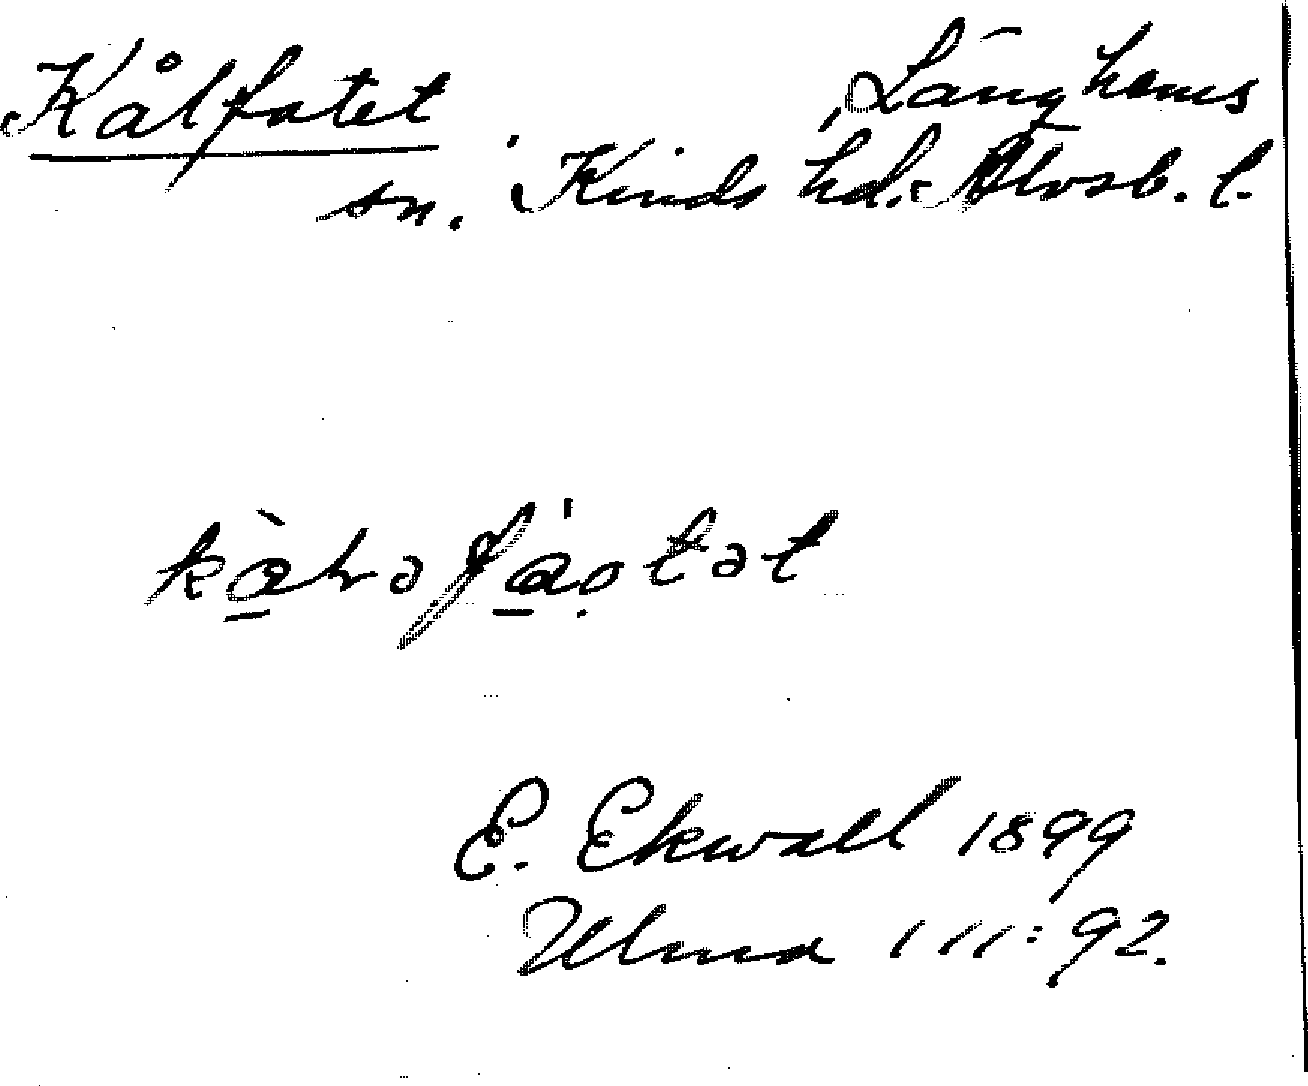 Kålfatet
Länghems
sn. Kinds hd. Älvsb. l.
E. Ekwall 1899
Ulma 111:92.